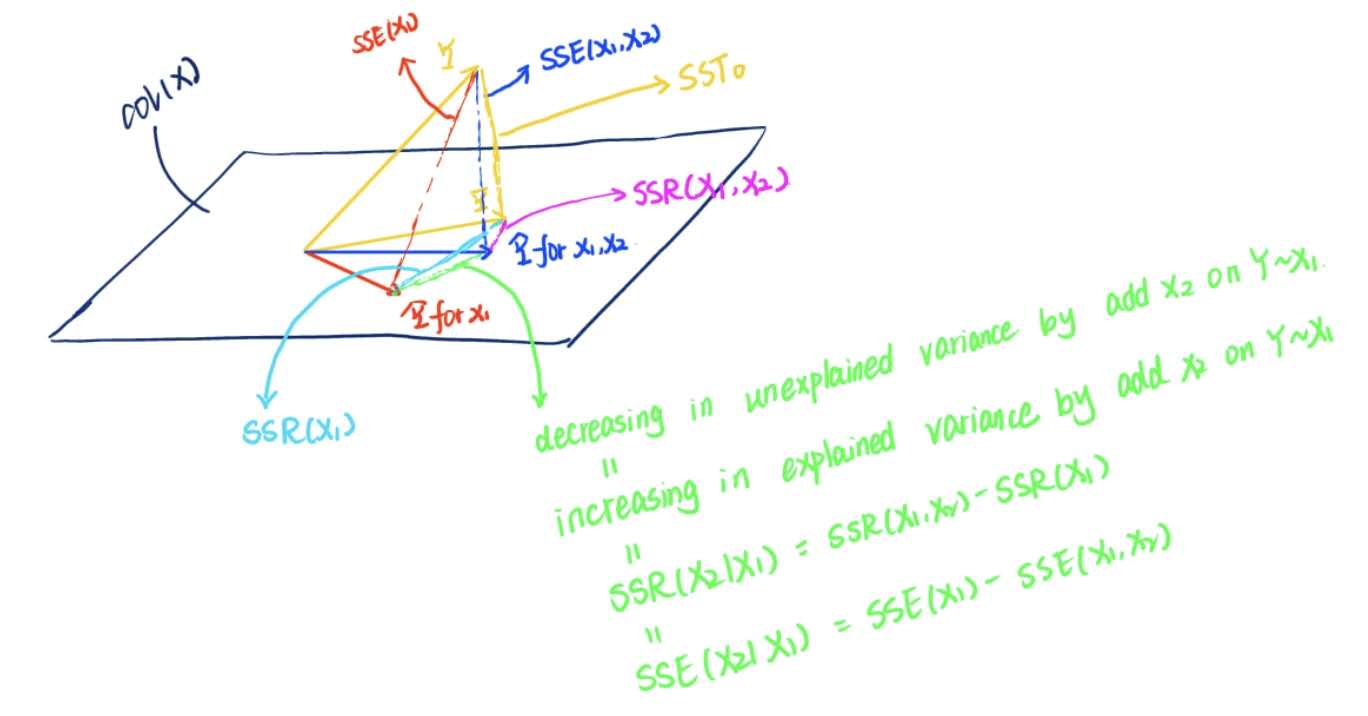 SSE(X₁)
Y
SSE(X₁,X₂)
SST₀
col(X)
Ȳ
SSR(X₁,X₂)
Ŷ for X₁,X₂
Ŷ for X₁
SSR(X₁)
decreasing in unexplained variance by add X₂ on Y~X₁.
"
increasing in explained variance by add X₂ on Y~X₁
"
SSR(X₂|X₁) = SSR(X₁,X₂) - SSR(X₁)
"
SSE(X₂|X₁) = SSE(X₁) - SSE(X₁,X₂)